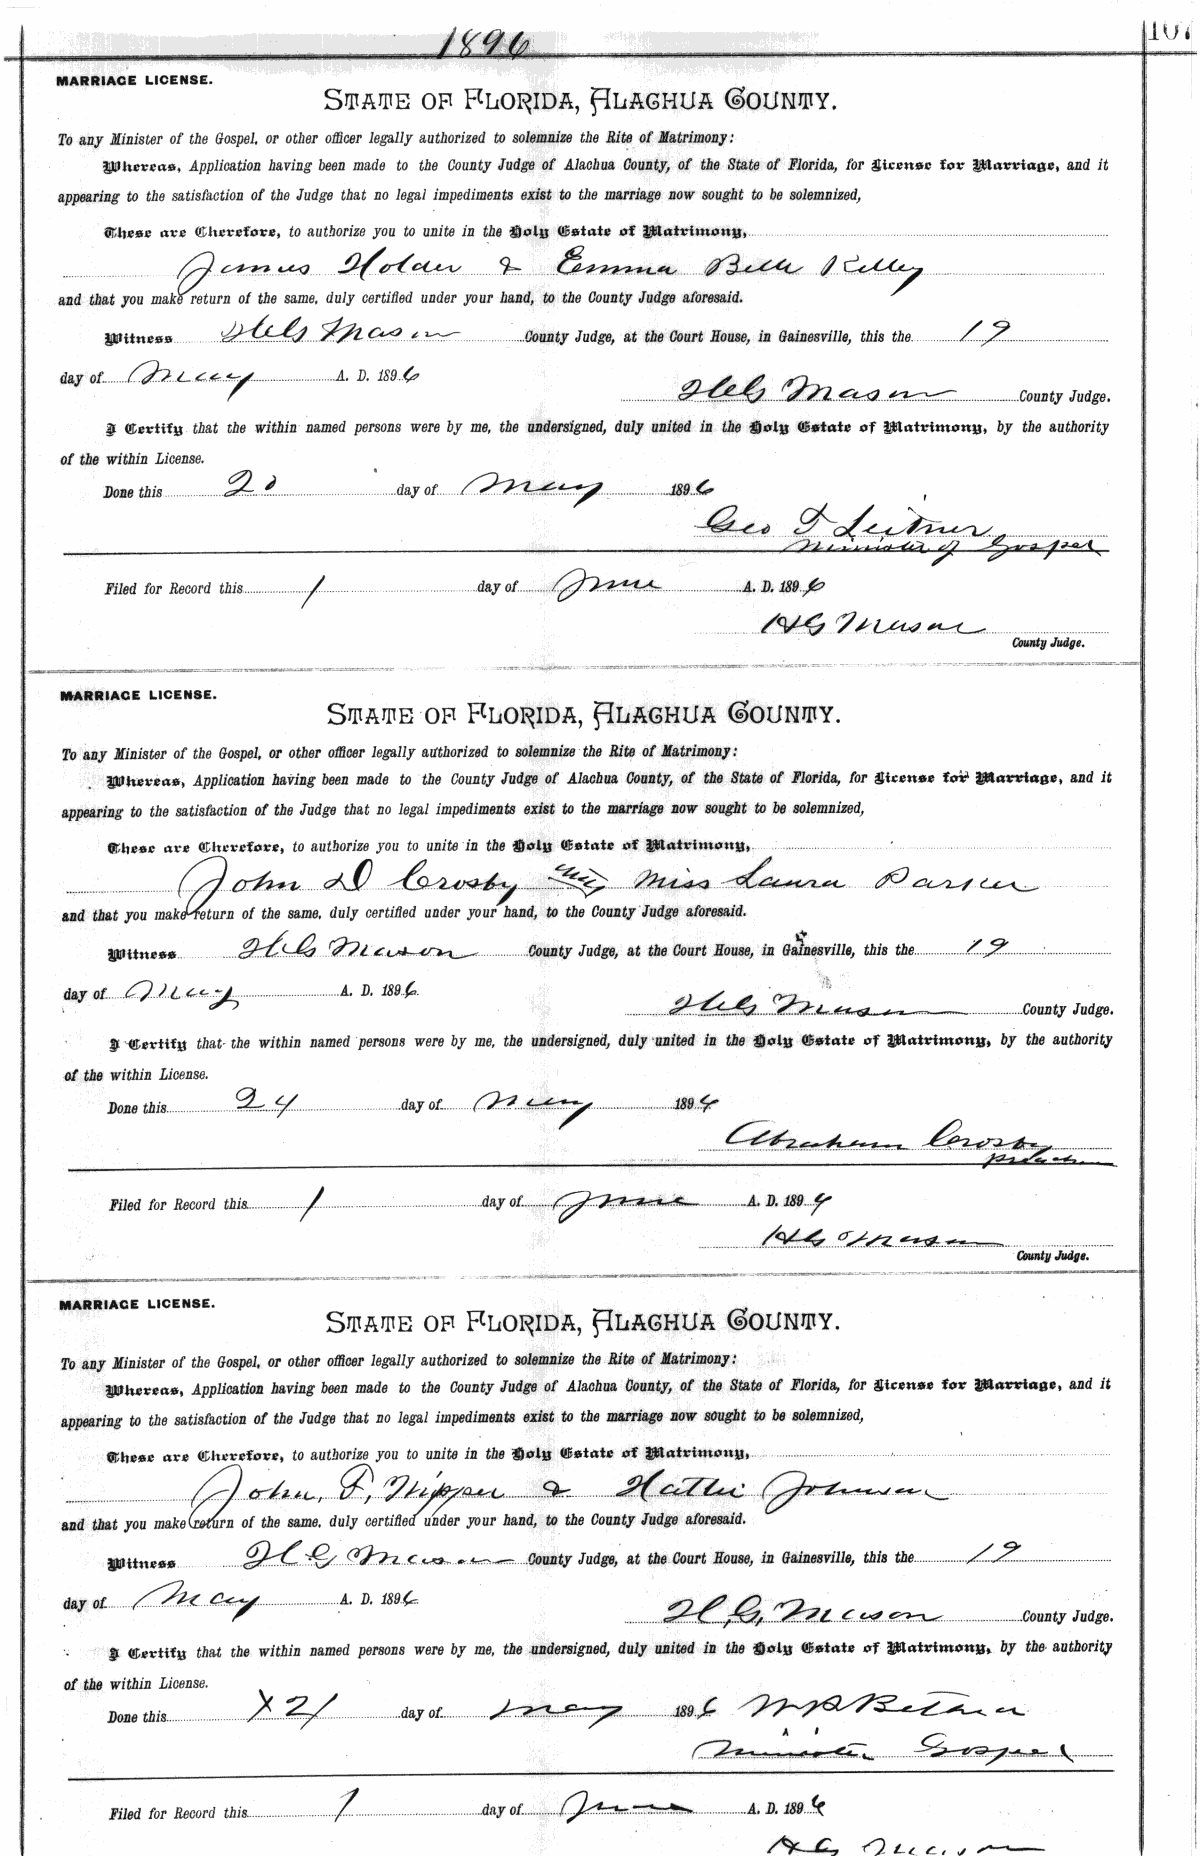 1896
107
MARRIAGE LICENSE.
STATE OF FLORIDA, ALACHUA COUNTY.
To any Minister of the Gospel, or other officer legally authorized to solemnize the Rite of Matrimony:
Whereas, Application having been made to the County Judge of Alachua County, of the State of Florida, for License for Marriage, and it
appearing to the satisfaction of the Judge that no legal impediments exist to the marriage now sought to be solemnized,
These are Therefore, to authorize you to unite in the Holy Estate of Matrimony,
James Holder & Emma Belle Kelley
and that you make return of the same, duly certified under your hand, to the County Judge aforesaid.
Witness H G Mason County Judge, at the Court House, in Gainesville, this the 19
day of May A. D. 1896
H G Mason County Judge.
I Certify that the within named persons were by me, the undersigned, duly united in the Holy Estate of Matrimony, by the authority
of the within License.
Done this 20 day of May 1896
Geo T Leitner
Minister of Gospel
Filed for Record this 1 day of June A. D. 1896
H G Mason
County Judge.
MARRIAGE LICENSE.
STATE OF FLORIDA, ALACHUA COUNTY.
To any Minister of the Gospel, or other officer legally authorized to solemnize the Rite of Matrimony:
Whereas, Application having been made to the County Judge of Alachua County, of the State of Florida, for License for Marriage, and it
appearing to the satisfaction of the Judge that no legal impediments exist to the marriage now sought to be solemnized,
These are Therefore, to authorize you to unite in the Holy Estate of Matrimony,
John D Crosby Miss Laura Parker
and that you make return of the same, duly certified under your hand, to the County Judge aforesaid.
Witness H G Mason County Judge, at the Court House, in Gainesville, this the 19
day of May A. D. 1896
H G Mason County Judge.
I Certify that the within named persons were by me, the undersigned, duly united in the Holy Estate of Matrimony, by the authority
of the within License.
Done this 24 day of May 1896
Abraham Crosby
Filed for Record this 1 day of June A. D. 1896
H G Mason
County Judge.
MARRIAGE LICENSE.
STATE OF FLORIDA, ALACHUA COUNTY.
To any Minister of the Gospel, or other officer legally authorized to solemnize the Rite of Matrimony:
Whereas, Application having been made to the County Judge of Alachua County, of the State of Florida, for License for Marriage, and it
appearing to the satisfaction of the Judge that no legal impediments exist to the marriage now sought to be solemnized,
These are Therefore, to authorize you to unite in the Holy Estate of Matrimony,
John, F, Nipper & Hattie Johnson
and that you make return of the same, duly certified under your hand, to the County Judge aforesaid.
Witness H G Mason County Judge, at the Court House, in Gainesville, this the 19
day of May A. D. 1896
H, G, Mason County Judge.
I Certify that the within named persons were by me, the undersigned, duly united in the Holy Estate of Matrimony, by the authority
of the within License.
Done this X 21 day of May 1896 Bethea
Minister Gospel
Filed for Record this 1 day of June A. D. 1896
H G Mason